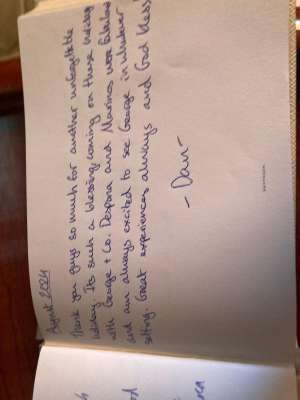 August 2024
Thank you guys so much for another unforgettable
holiday. Its such a blessing coming on these holidays
with George + Co. Despona and Marinos were fabulous
and am always excited to see George in whatever
setting. Great experiences always and God bless!
- Dan -